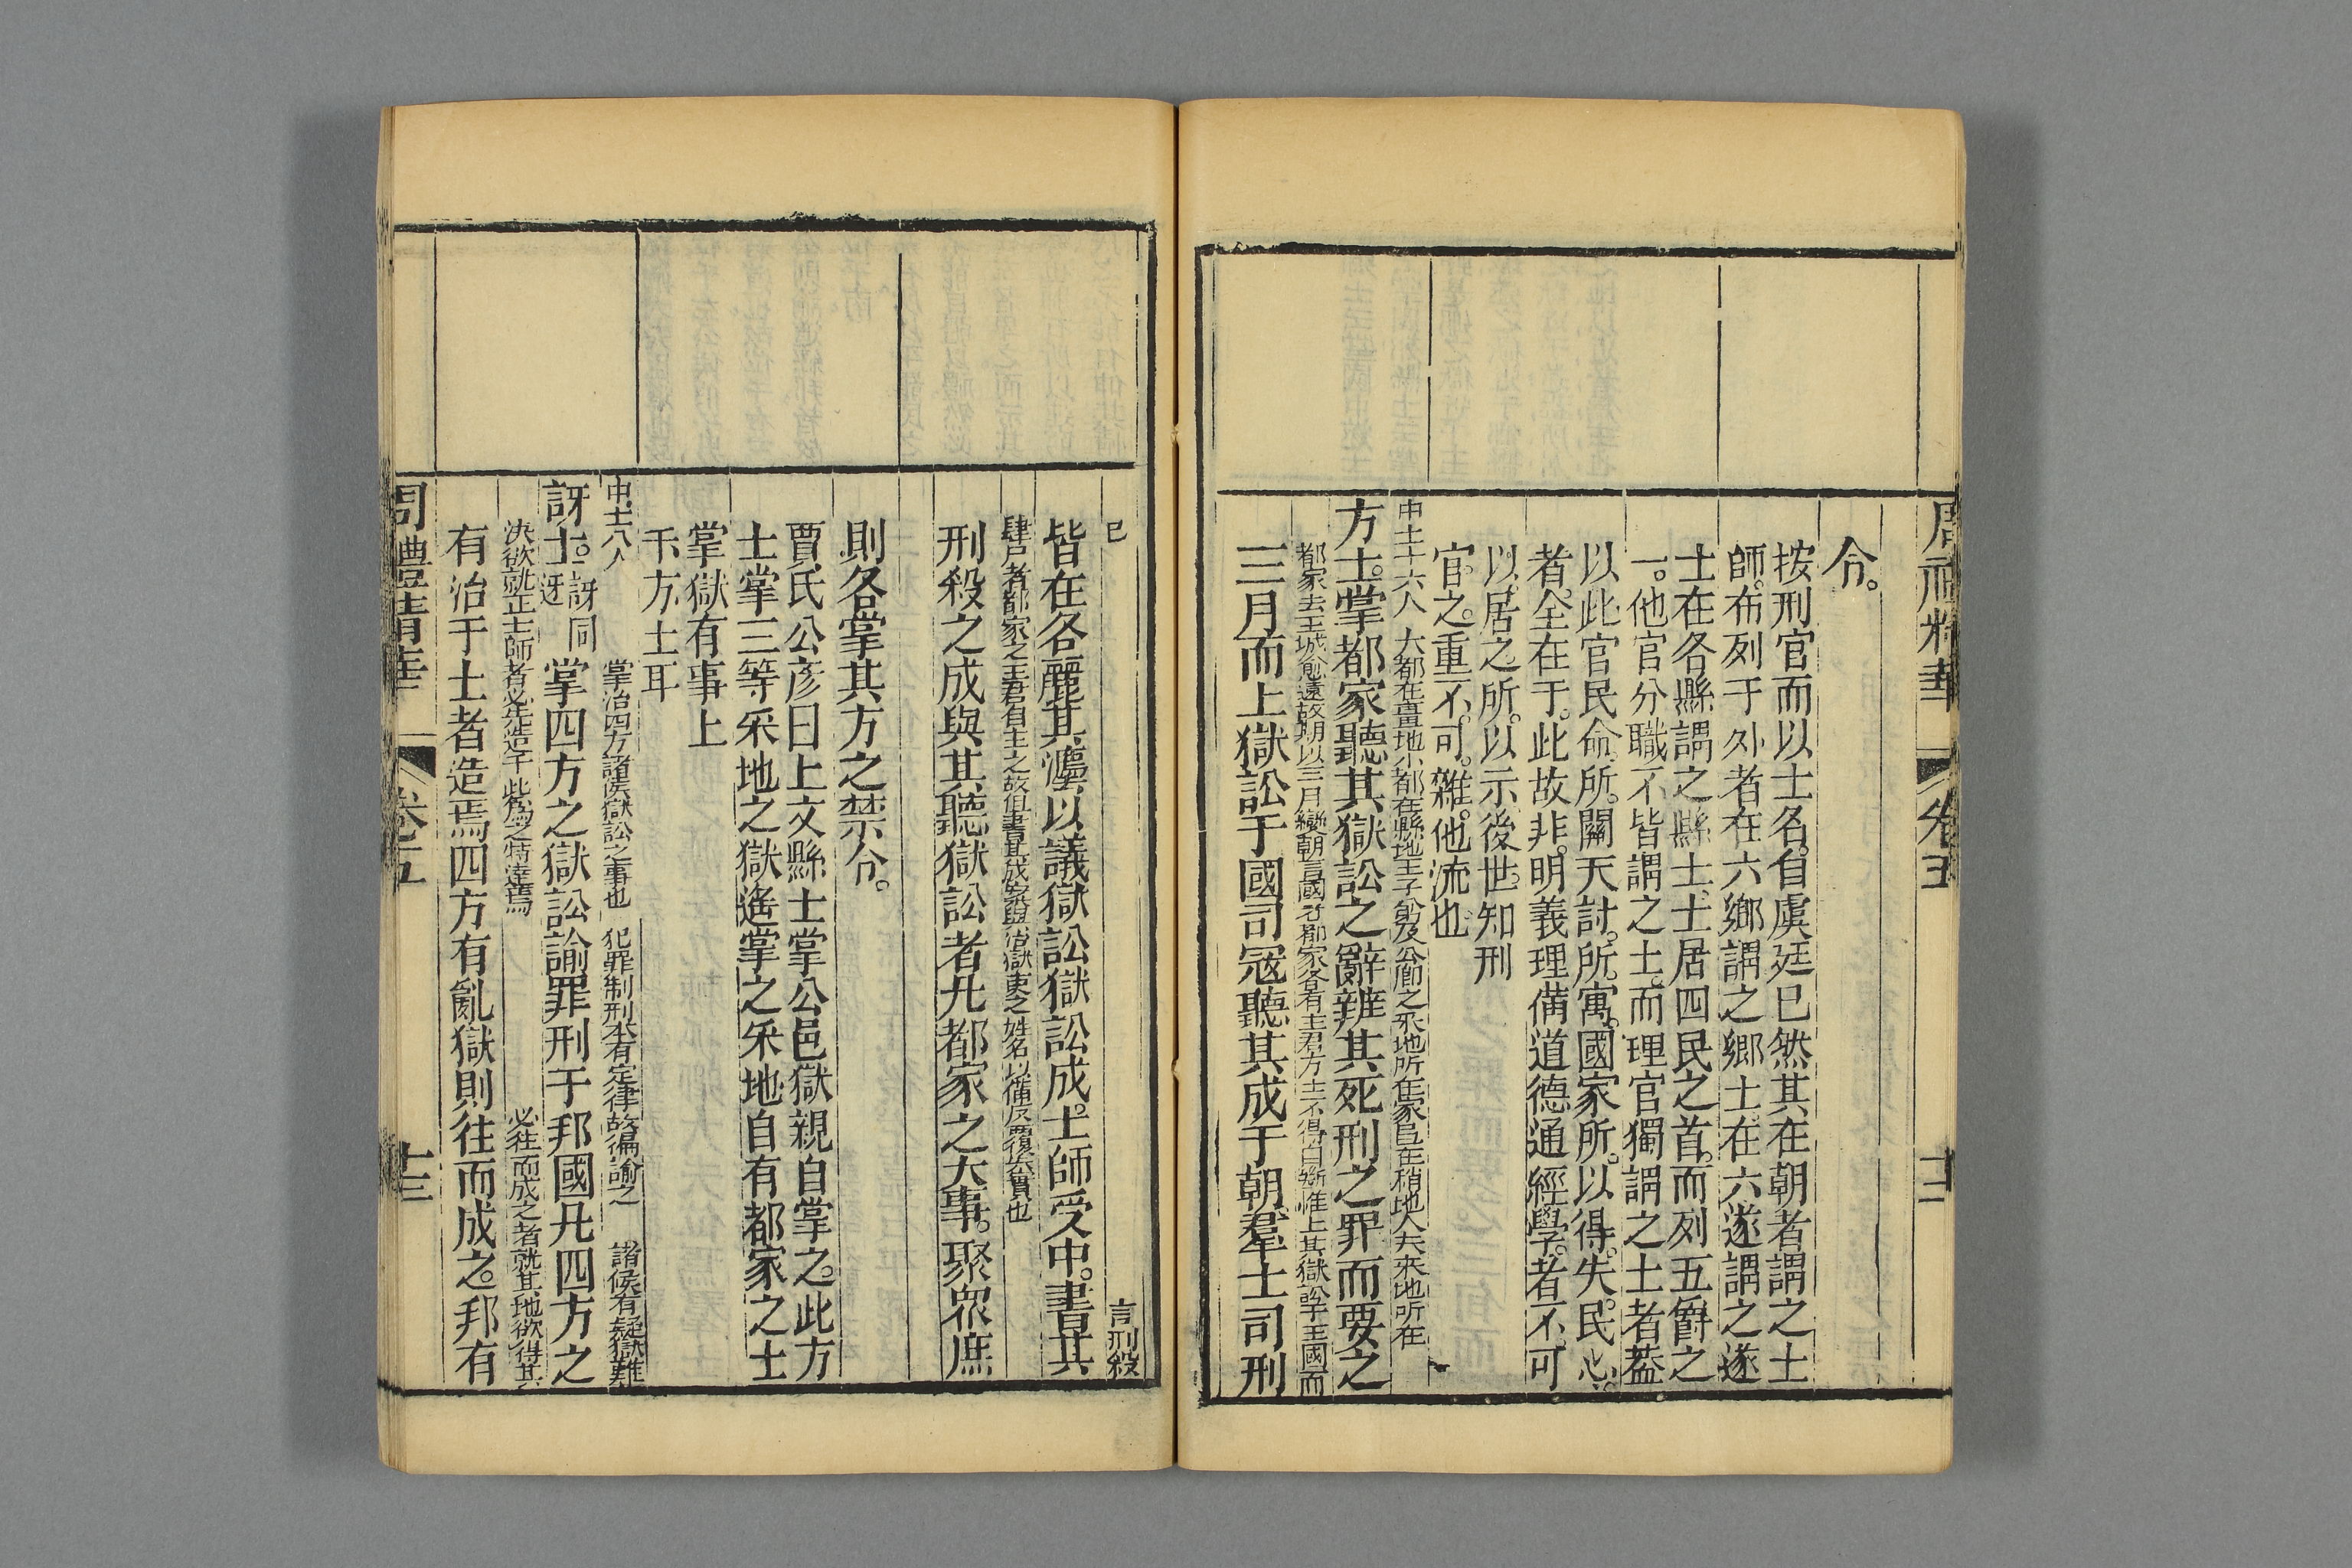 周禮精華 卷五 十二
令。
按刑官而以士名。自虞廷已然其在朝者謂之士
師。布列于外者在六鄉謂之鄉士。在六遂謂之遂
士在各縣謂之縣士。士居四民之首。而列五爵之
一。他官分職不皆謂之士。而理官獨謂之士者葢
以此官民命所。關天討。所寓。國家所。以得。失。民心。
者。全在于。此故非。明義理備道德通經學。者不。可
以居之。所。以示後世。知刑
官。之。重不。可。雜。他流也
中士十六人 大都在畺地小都在縣地王子弟及公卿之采地所在家邑在稍地大夫采地所在
方士。掌都家聽其獄訟之辭辨其死刑之罪而要之
都家去王城愈遠故期以三月變朝言國者都家各有主君方士不得自斷惟上其獄訟于王國而
三月而上獄訟于國司寇聽其成于朝羣士司刑
已 言刑殺
皆在各麗其灋以議獄訟獄訟成。士師受中。書其
肆尸者都家之主君自主之故但書其成案與治獄吏之姓名以備反覆太實也
刑殺之成與其聽獄訟者凡都家之大事。聚眾庶
則各掌其方之禁令。
賈氏公彦曰上文縣士掌公邑獄親自掌之。此方
士掌三等采地之獄遙掌之采地自有都家之士
掌獄有事上
于方士耳
中士八人 掌治四方諸侯獄訟之事也 犯罪制刑本有定律故徧諭之 諸侯有疑獄難
訝士。訝同迓 掌四方之獄訟諭罪刑于邦國凡四方之
決欲就正士師者必先造于此為之特達焉 必往而成之者就其地欲得其
有治于士者造焉四方有亂獄則往而成之。邦有
周禮精華 卷五 十三